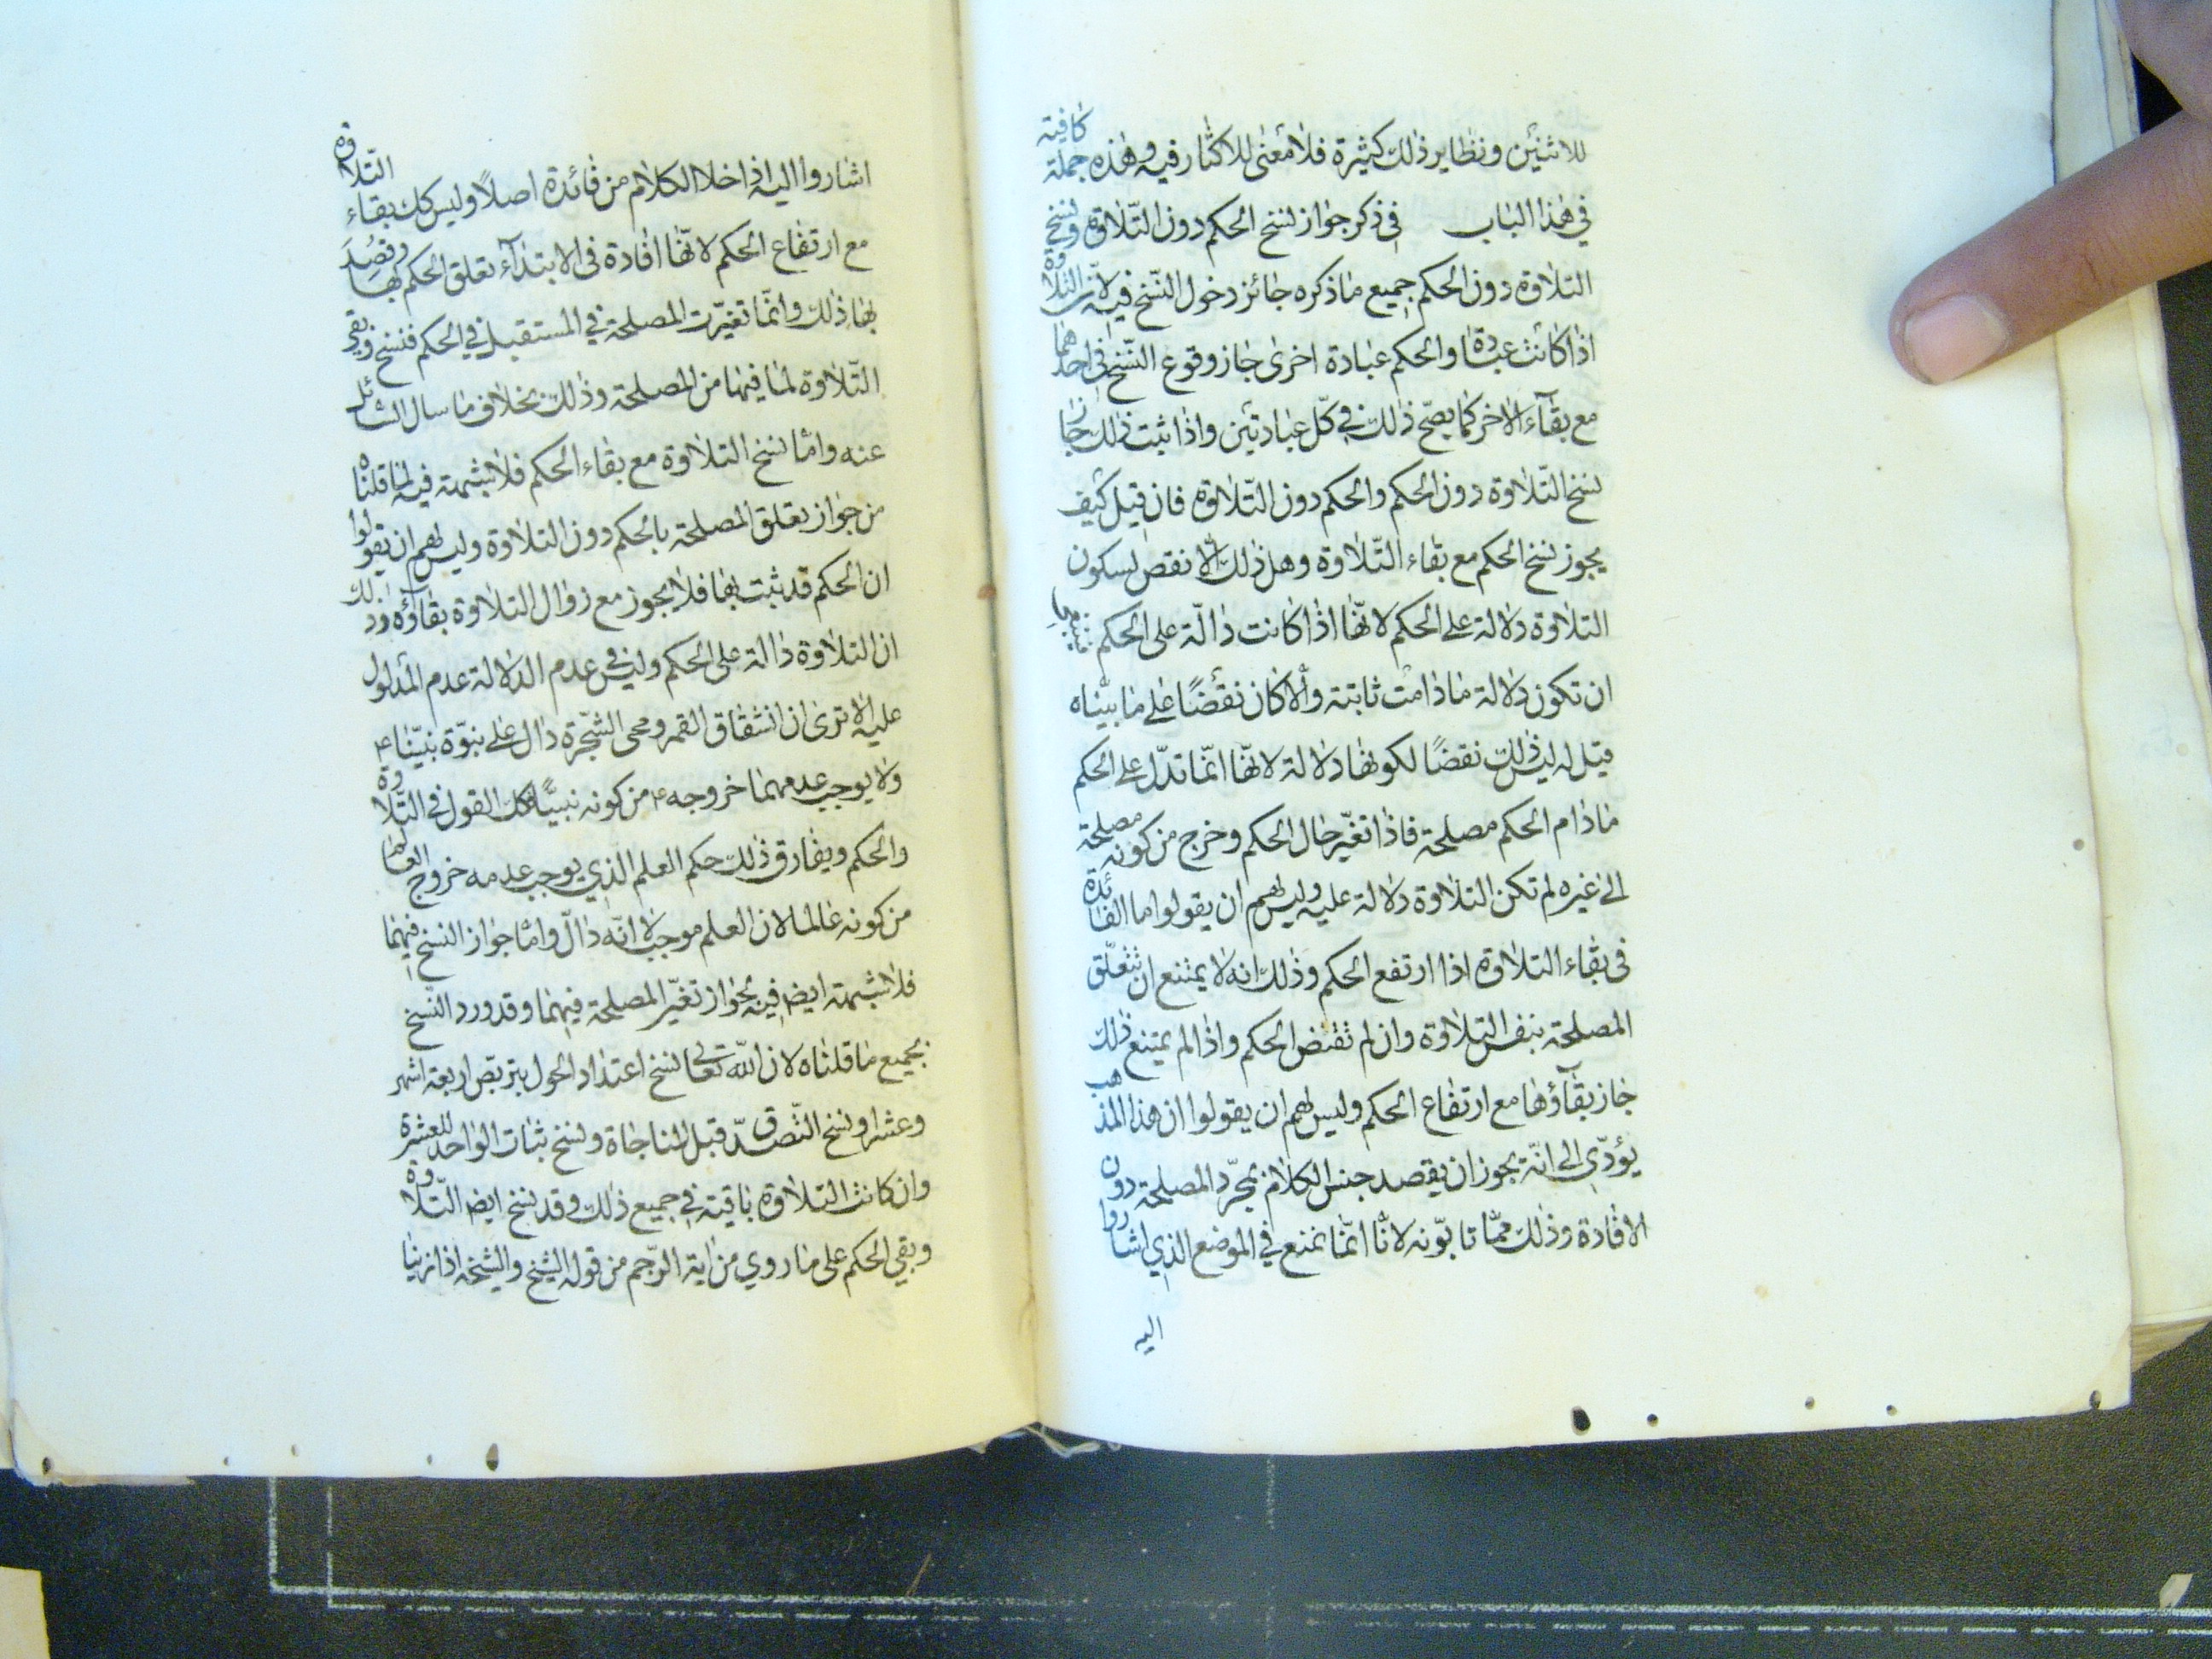 للاثنين ونظاير ذلك كثيرة فلا معنى للاكثار فيه وهذه جملة كافية
في هذا الباب في ذكر جواز نسخ الحكم دون التلاوة ونسخ
التلاوة دون الحكم جميع ما ذكره جائز دخول النسخ فيه لان التلاوة
اذا كانت عبادة والحكم عبادة اخرى جاز وقوع النسخ في احدهما
مع بقاء الاخر كما يصح ذلك في كل عبادتين واذا ثبت ذلك جاز
نسخ التلاوة دون الحكم والحكم دون التلاوة فان قيل كيف
يجوز نسخ الحكم مع بقاء التلاوة وهل ذلك الا نقص لسكون
التلاوة دلالة على الحكم لانها اذا كانت دالة على الحكم
ان تكون دلالة ما دامت ثابتة والا كان نقضا على ما بيناه
قيل له ليس ذلك نقضا لكونها دلالة لانها انما تدل على الحكم
ما دام الحكم مصلحة فاذا تغير حال الحكم وخرج من كونه مصلحة
الى غيره لم تكن التلاوة دلالة عليه وليس لهم ان يقولوا ما الفائدة
في بقاء التلاوة اذا ارتفع الحكم وذلك انه لا يمتنع ان تتعلق
المصلحة بنفس التلاوة وان لم تقتض الحكم واذا لم يمتنع ذلك
جاز بقاؤها مع ارتفاع الحكم وليس لهم ان يقولوا ان هذا المذهب
يؤدي الى انه يجوز ان يقصد جنس الكلام بمجرد المصلحة دون
الافادة وذلك مما تابونه لانا انما نمنع في الموضع الذي اشاروا
اليه
اشاروا اليه اذا خلا الكلام من فائدة اصلا وليس كك بقاء التلاوة
مع ارتفاع الحكم لانها افادة في الابتداء تعلق الحكم بها وقصد
بها ذلك وانما تغيرت المصلحة في المستقبل في الحكم فنسخ وبقي
التلاوة لما فيها من المصلحة وذلك بخلاف ما سال السائل
عنه واما نسخ التلاوة مع بقاء الحكم فلا شبهة فيه لما قلناه
من جواز تعلق المصلحة بالحكم دون التلاوة وليس لهم ان يقولوا
ان الحكم قد ثبت بها فلا يجوز مع زوال التلاوة بقاؤه وذلك
ان التلاوة دالة على الحكم وليس في عدم الدلالة عدم المدلول
عليه الا ترى ان انشقاق القمر ومجى الشجرة دال على نبوة نبينا ٤
ولا يوجب عدمهما خروجه ٤ من كونه نبيا فكك القول في التلاوة
والحكم ويفارق ذلك حكم العلم الذي يوجب عدمه خروج العالم
من كونه عالما لان العلم موجب لا انه دال واما جواز النسخ فيهما
فلا شبهة ايضا فيه لجواز تغير المصلحة فيهما وقد ورد النسخ
بجميع ما قلناه لان الله تعالى نسخ اعتداد الحول بتربص اربعة اشهر
وعشرا ونسخ التصدق قبل المناجاة ونسخ ثبات الواحد للعشرة
وان كانت التلاوة باقية في جميع ذلك وقد نسخ ايضا التلاوة
وبقي الحكم على ما روي من اية الرجم من قوله الشيخ والشيخة اذا زنيا